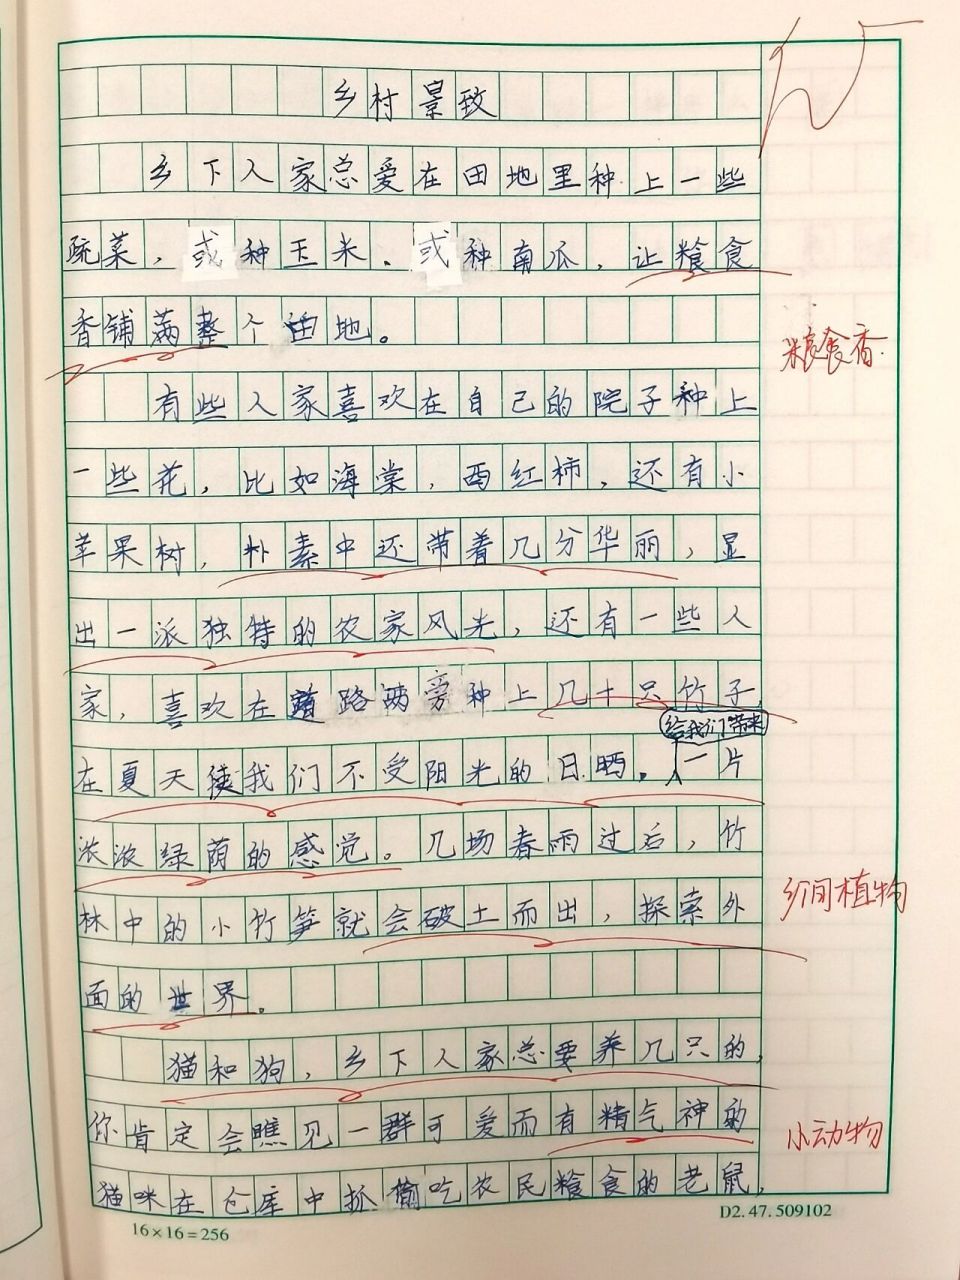 乡村景致
乡下人家总爱在田地里种上一些
蔬菜，或种玉米、或种南瓜，让粮食
香铺满整个田地。
粮食香
有些人家喜欢在自己的院子种上
一些花，比如海棠，西红柿，还有小
苹果树，朴素中还带着几分华丽，显
出一派独特的农家风光，还有一些人
家，喜欢在道路两旁种上几十只竹子，
给我们带来
在夏天使我们不受阳光的日晒，一片
浓浓绿荫的感觉。几场春雨过后，竹
林中的小竹笋就会破土而出，探索外
乡间植物
面的世界。
猫和狗，乡下人家总要养几只的，
你肯定会瞧见一群可爱而有精气神的
小动物
猫咪在仓库中抓偷吃农民粮食的老鼠，
16×16=256
D2.47.509102